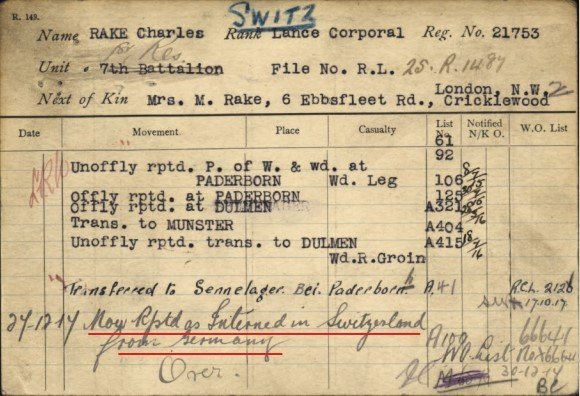 R. 149.
SWITZ
Name RAKE Charles Rank Lance Corporal Reg. No. 21753
1st Res
Unit 7th Battalion File No. R.L. 25-R.1487
London, N.W. 2
Next of Kin Mrs. M. Rake, 6 Ebbsfleet Rd., Cricklewood
Date Movement Place Casualty List No. Notified N/K O. W.O. List
61
92
Unoffly rptd. P. of W. & wd. at
PADERBORN Wd. Leg 106
Offly rptd. at PADERBORN 125
Offly rptd. at DULMEN A321
Trans. to MUNSTER A404
Unoffly rptd. trans. to DULMEN A415
Wd.R.Groin
Transferred to Sennelager. Bei. Paderborn A.41 RCL. 212b
17.10.17.
27-12-17 Now Rptd as Interned in Switzerland A100 66641
from Germany W.O. List No 66641
Over. 30-12-17
BC